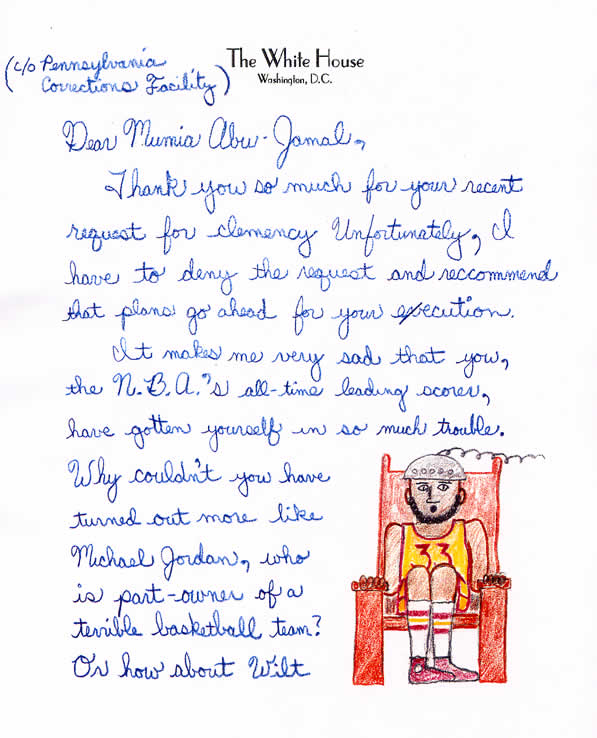 (c/o Pennsylvania
Corrections Facility)
The White House
Washington, D.C.
Dear Mumia Abu-Jamal,
Thank you so much for your recent
request for clemency Unfortunately, I
have to deny the request and reccommend
that plans go ahead for your execution.
It makes me very sad that you,
the N.B.A.'s all-time leading scorer,
have gotten yourself in so much trouble.
Why couldn't you have
turned out more like
Michael Jordan, who
is part-owner of a
terrible basketball team?
Or how about Wilt
33